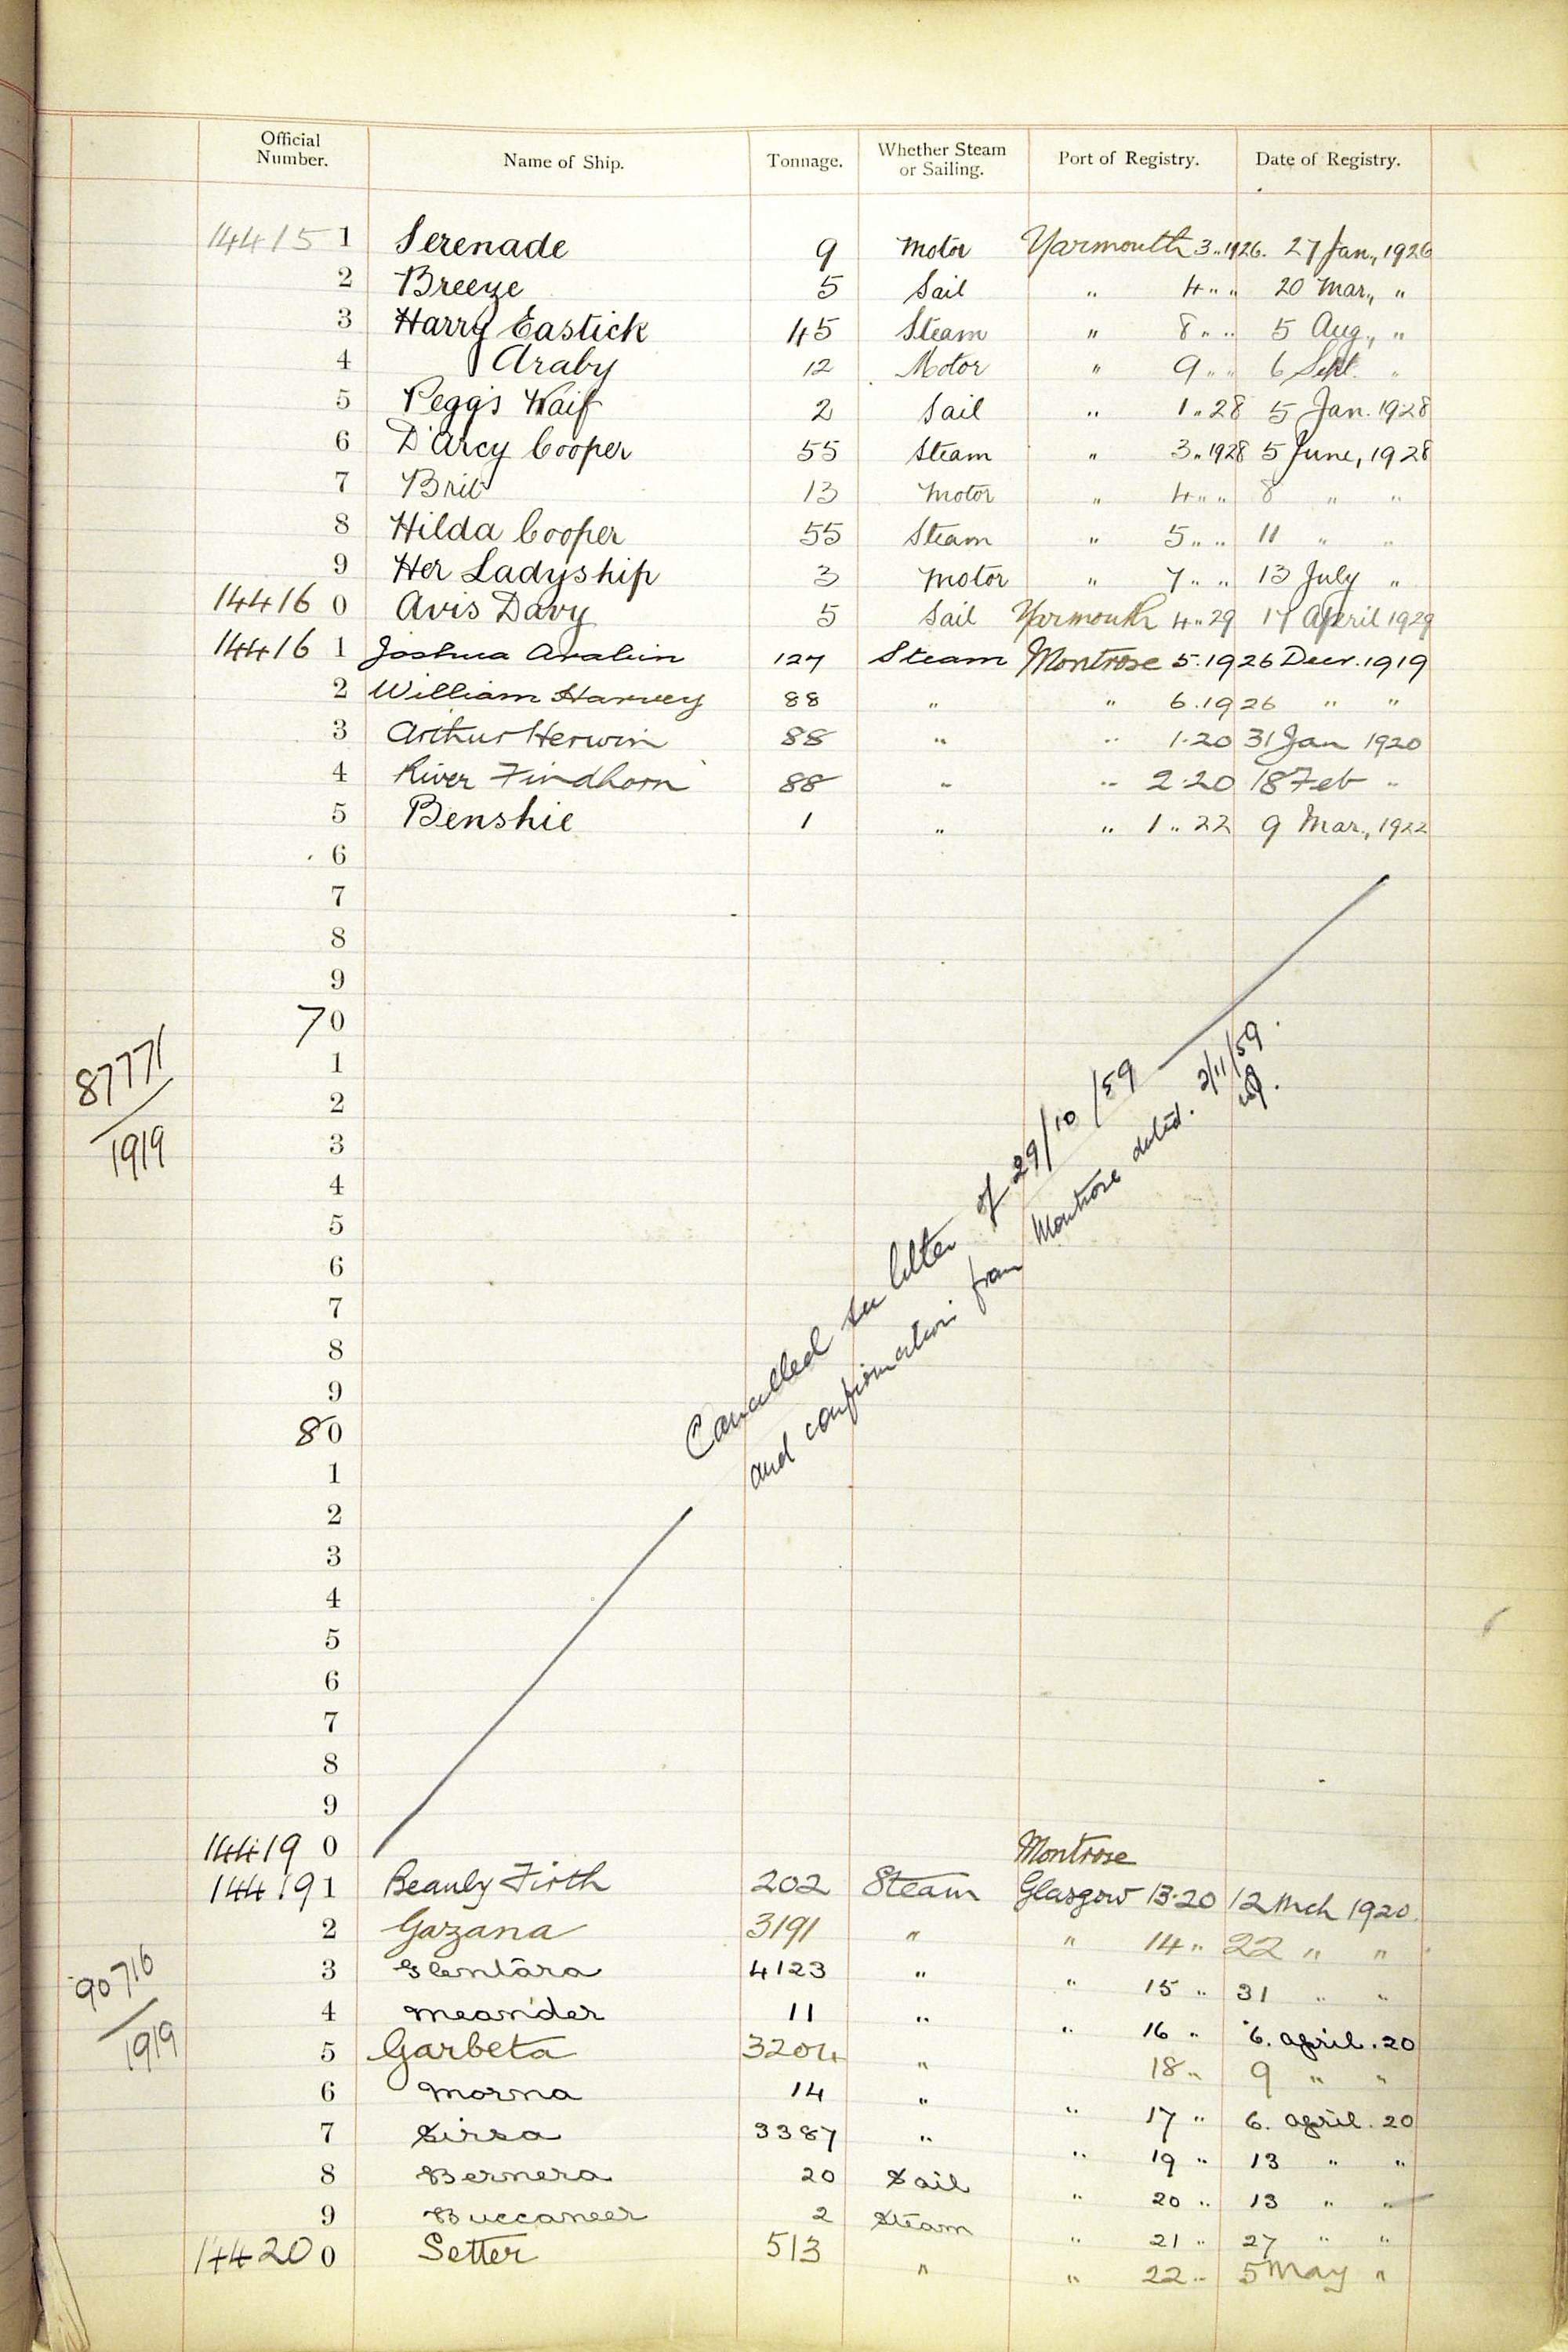 Official Number. Name of Ship. Tonnage. Whether Steam or Sailing. Port of Registry. Date of Registry.
14415 1 Serenade 9 Motor Yarmouth 3 " 1926. 27 Jan., 1926
2 Breeze 5 Sail " 4 " " 20 Mar., "
3 Harry Eastick 45 Steam " 8 " " 5 Aug., "
4 Araby 12 Motor " 9 " " 6 Sept. "
5 Peggs Waif 2 Sail " 1 " 28 5 Jan. 1928
6 D'Arcy Cooper 55 Steam " 3 " 1928 5 June, 1928
7 Brit 13 Motor " 4 " " 8 " "
8 Hilda Cooper 55 Steam " 5 " " 11 " "
9 Her Ladyship 3 Motor " 7 " " 13 July "
14416 0 Avis Davy 5 Sail Yarmouth 4 " 29 17 April 1929
14416 1 Joshua Arabin 127 Steam Montrose 5.19 26 Decr. 1919
2 William Harvey 88 " " 6.19 26 " "
3 Arthur Herwin 88 " " 1.20 31 Jan 1920
4 River Findhorn 88 " " 2.20 18 Feb "
5 Benshie 1 " " 1 " 22 9 Mar., 1922
6
7
8
9
70
87771/1919
1
2
3
4
5
6
7
8
9
80
Cancelled see letter of 29/10/59
and confirmation from Montrose dated. 2/11/59.
1
2
3
4
5
6
7
8
9
14419 0 Montrose
14419 1 Beauly Firth 202 Steam Glasgow 13.20 12 Mch 1920
2 Gazana 3191 " " 14 " 22 " "
90716/1919
3 Glentara 4123 " " 15 " 31 " "
4 Meander 11 " " 16 " 6. April. 20
5 Garbeta 3204 " 18 " 9 " "
6 Morna 14 " " 17 " 6. April. 20
7 Sirsa 3387 " " 19 " 13 " "
8 Bernera 20 Sail " 20 " 13 " "
9 Buccaneer 2 Steam " 21 " 27 " "
14420 0 Setter 513 " " 22 " 5 May "